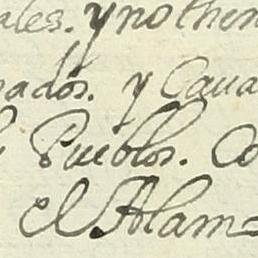 ales. y no then
ados. y Caua
Pueblos. Co
el Alam